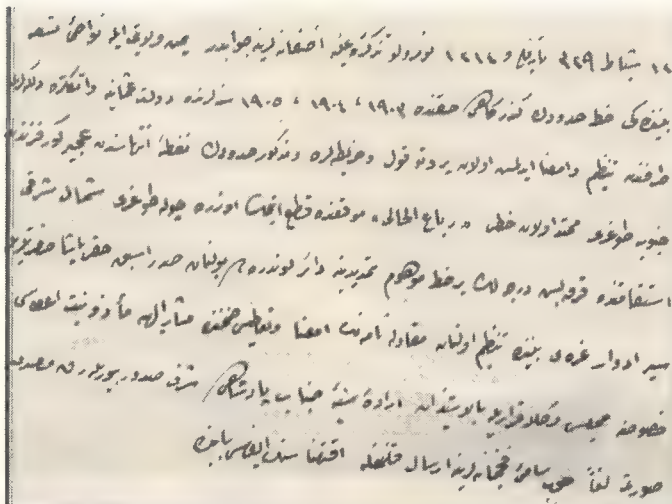 ١٢ شباط ٣٢٩ تاريخلى و ١٢١٤ نومرولى تذكره عليه آصفانه لرينه جوابدر يمن ولايتى ايله نواحئ تسعه
بيننده كى خط حدودك كذركاهى حقنده ١٩٠٣، ١٩٠٤، ١٩٠٥ سنه لرنده دولت عثمانيه وانكلتره
طرفندن تنظيم وامضا ايديلمش اولان پروتوقول وخريطه لره ومذكور حدودك نقطۀ انتهاسندن
جنوبه طوغرى ممتد اولان خطى «رباع الخالى» موقعنده قطع ايتمك اوزره چوله طوغرى شمال شرقى
استقامتنده قرق بش درجه لك بر خط موهوم تمديدينه دائر لوندره ده بولنان صدر اسبق حقى پاشا حضرتلريله
سير ادوارد غره ى بيننده تنظيم اولنان مقاوله نامه نك امضا وتعاطيسى ضمننده مشار اليهه مأذونيت اعطاسى
خصوصنه مجلس وكلا قراريله بالاستيذان ارادۀ سنيۀ جناب پادشاهى شرفصدور بيورلمش
صورتى لفاً سامئ فخيمانه لرينه ارسال قلنمغله اقتضاسنك ايفاسى بابنده